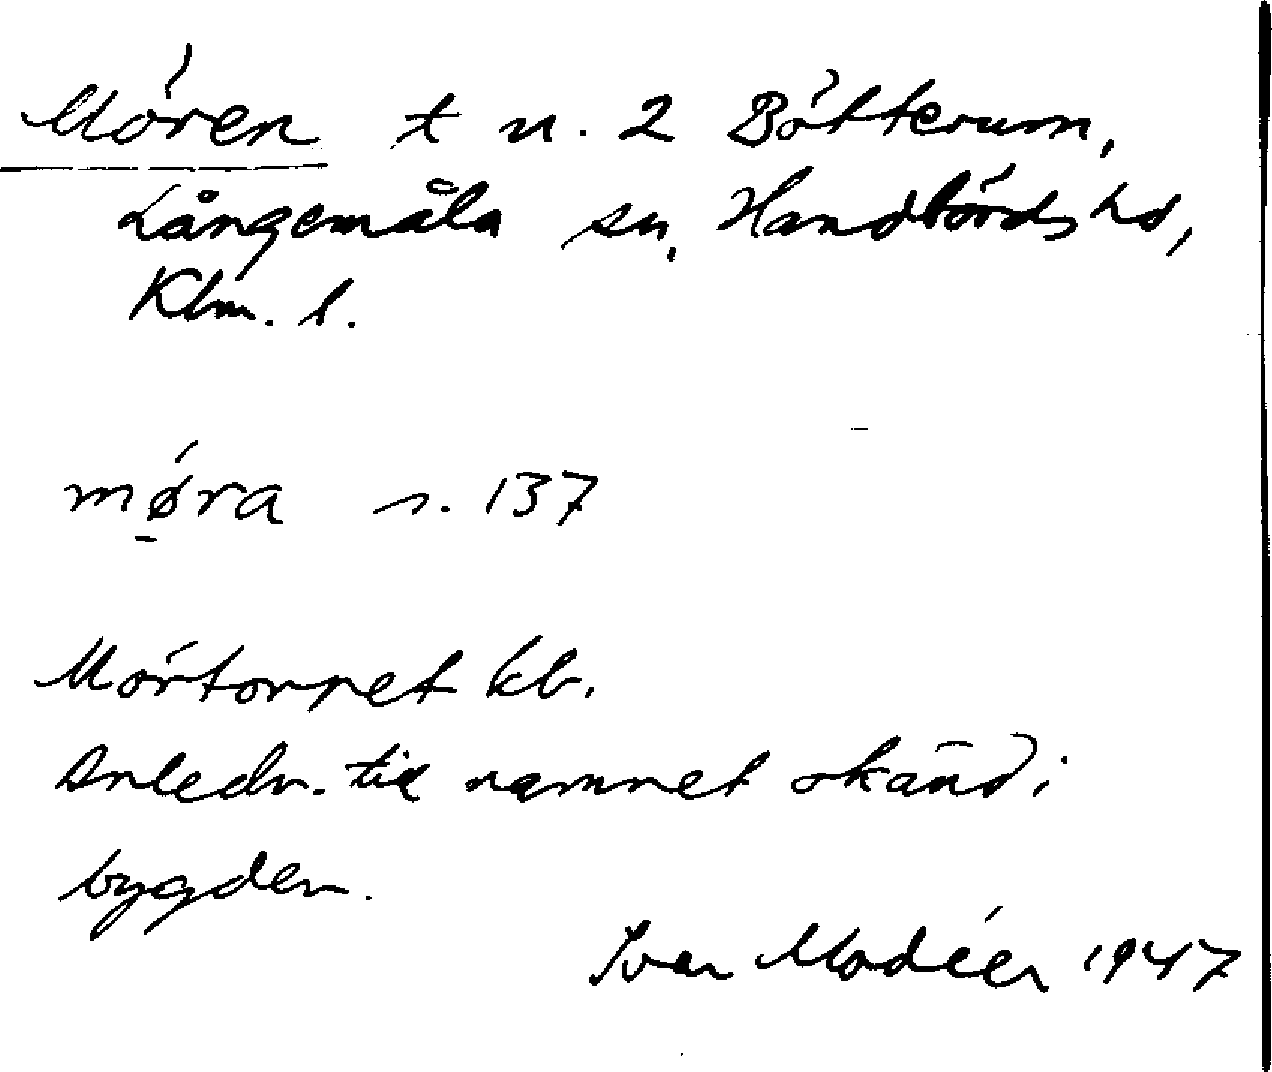 Mören t u. 2 Bötterum,
Långemåla sn, Handbörds hd,
Klm. l.
möra s. 137
Mörtorpet kb.
Anledn. till namnet okänd i
bygden.
Ivar Modéer 1947